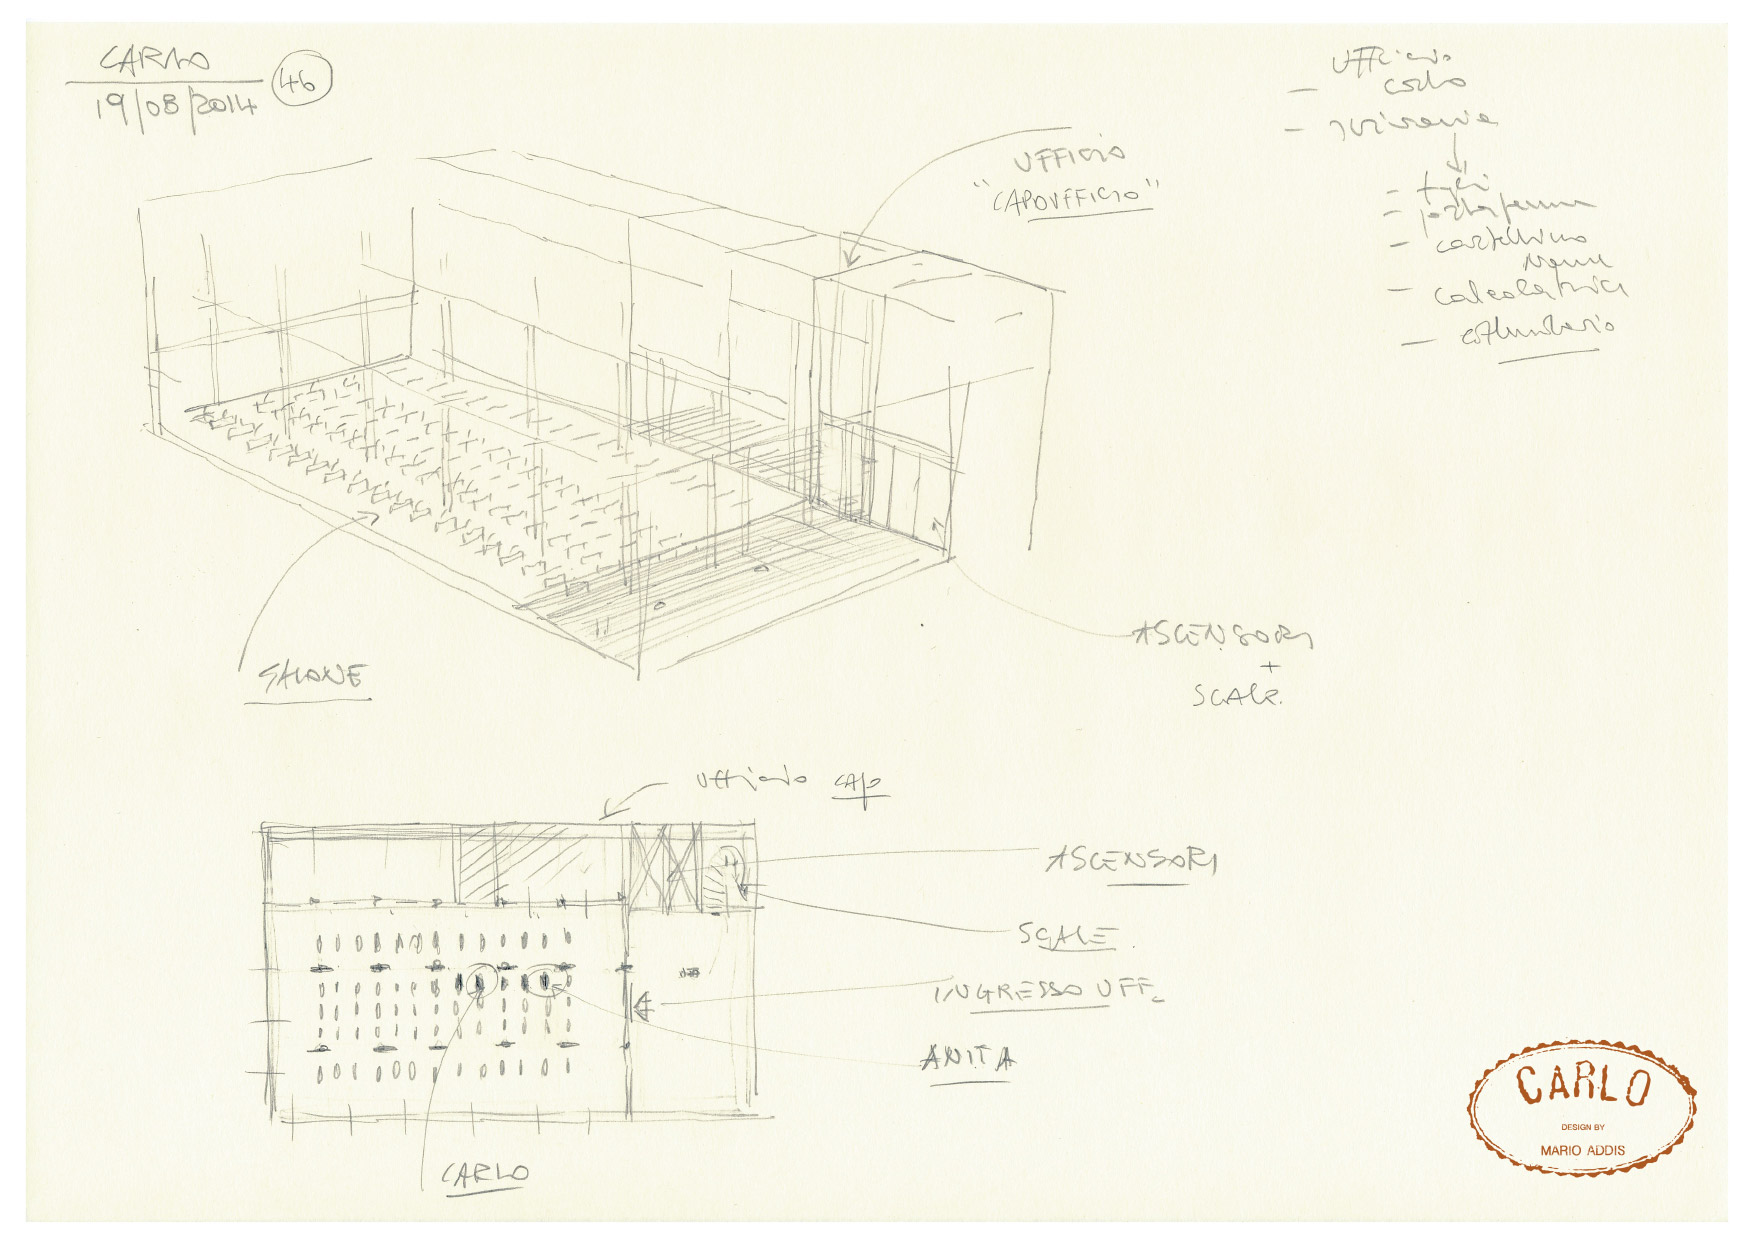 CARLO
19/08/2014
46
ufficio
carlo
- scrivania
-
- portapenne
- cartellino
nome
- calcolatrici
- calendario
UFFICIO
"CAPOUFFICIO"
SALONE
ASCENSORI
+
SCALE.
ufficio capo
ASCENSORI
SCALE
INGRESSO UFF.
ANITA
CARLO
CARLO
DESIGN BY
MARIO ADDIS